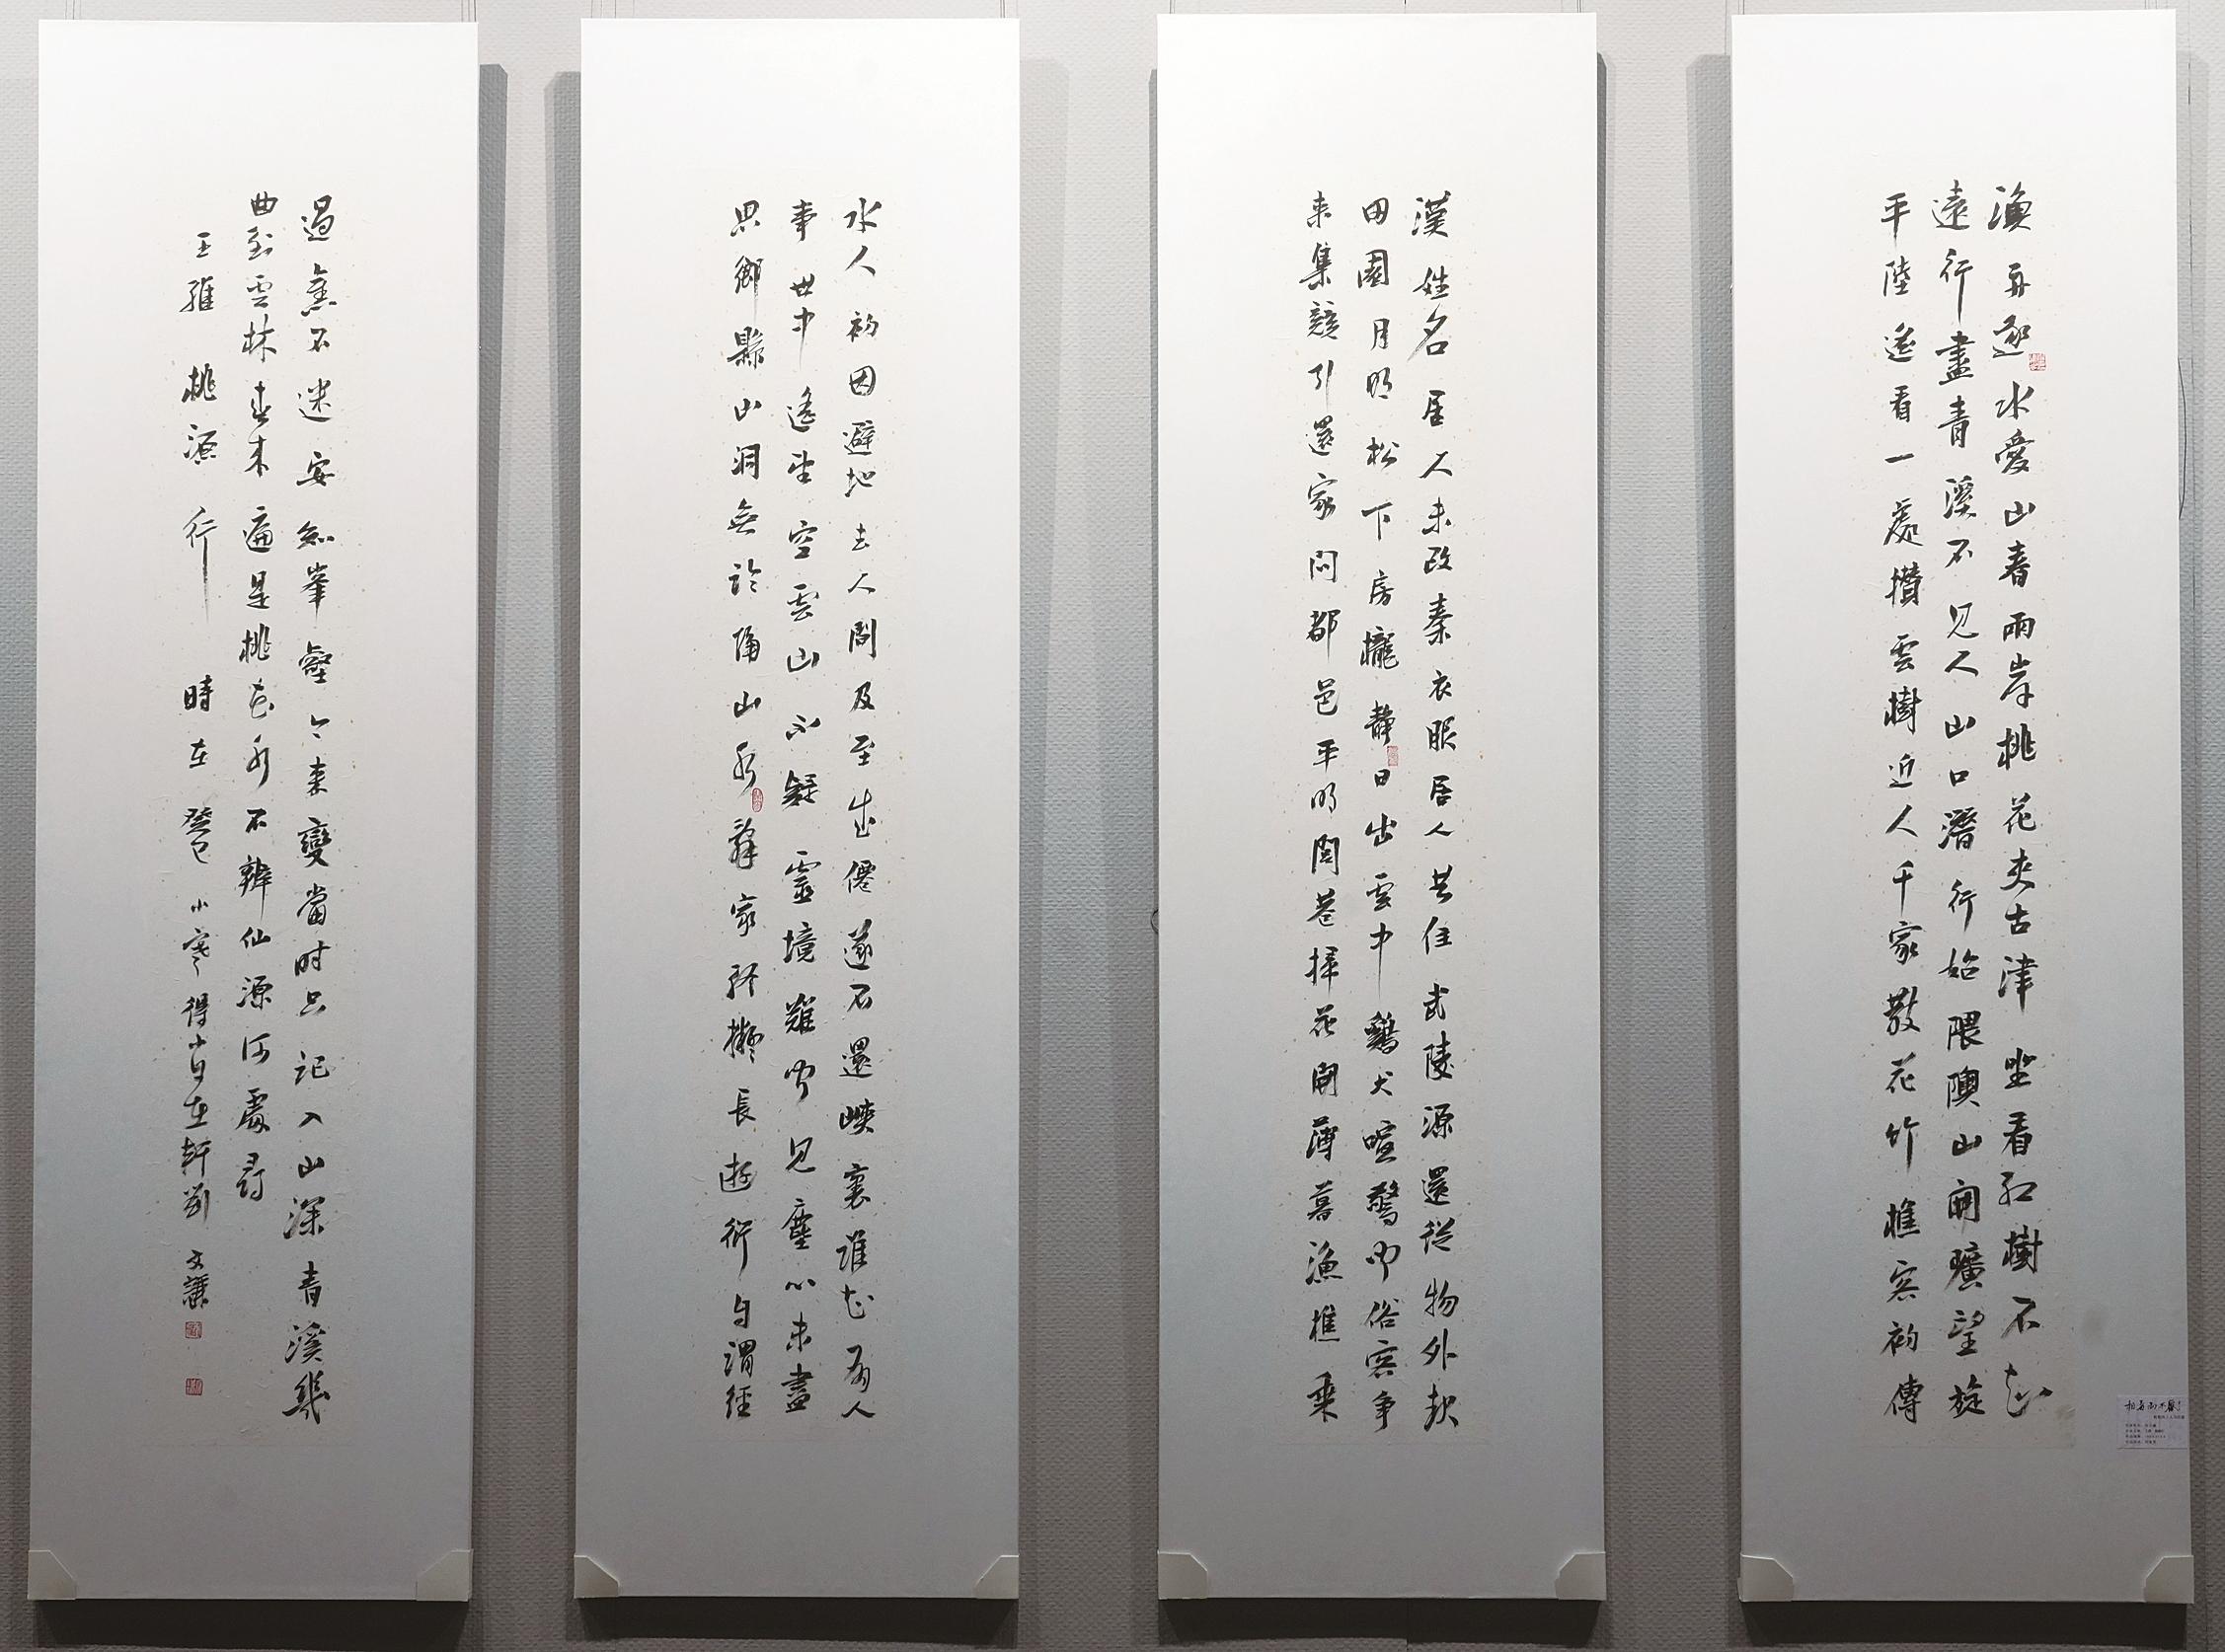 漁舟逐水愛山春兩岸桃花夾古津坐看紅樹不知
遠行盡青溪不見人山口潛行始隈隩山開曠望旋
平陸遙看一處攢雲樹近人千家散花竹樵客初傳
漢姓名居人未改秦衣服居人共住武陵源還從物外起
田園月明松下房櫳靜日出雲中鷄犬喧驚聞俗客爭
来集競引還家問都邑平明閭巷掃花開薄暮漁樵乘
水人初因避地去人間及至成僊遂不還峽裏誰知有人
事世中遙望空雲山不疑靈境難聞見塵心未盡
思鄉縣山洞無論隔山水辭家終擬長遊衍自謂經
過舊不迷安知峯壑今来變當时只記入山深青溪幾
曲到雲林春来遍是桃花水不辨仙源何處尋
王維 桃源行 時在癸巳小寒得自在軒劉文謙